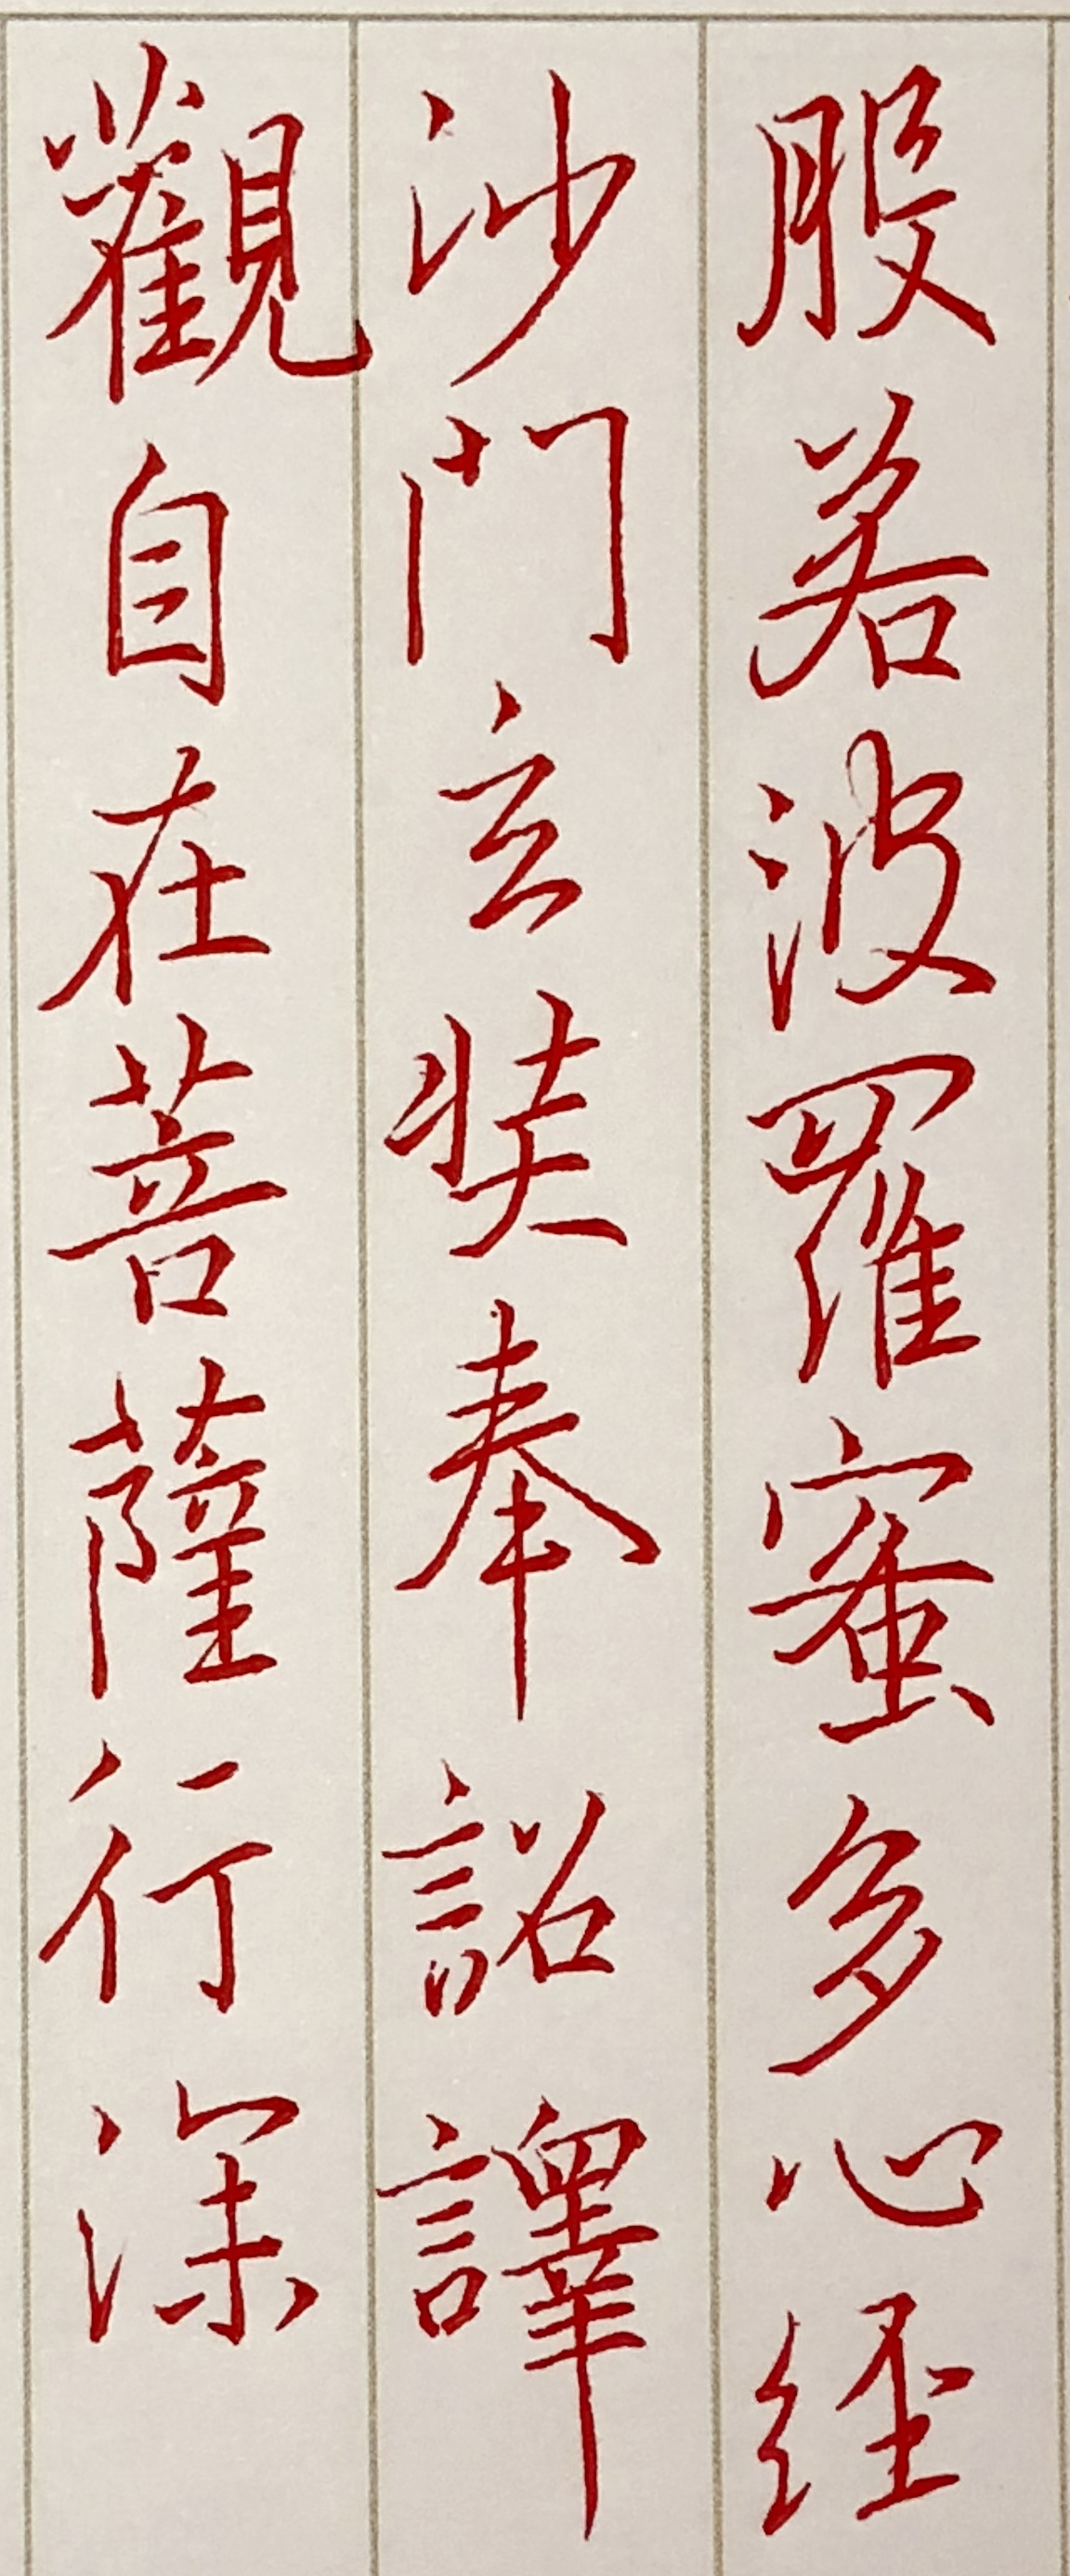 般若波羅蜜多心経
沙門玄奘奉詔譯
觀自在菩薩行深